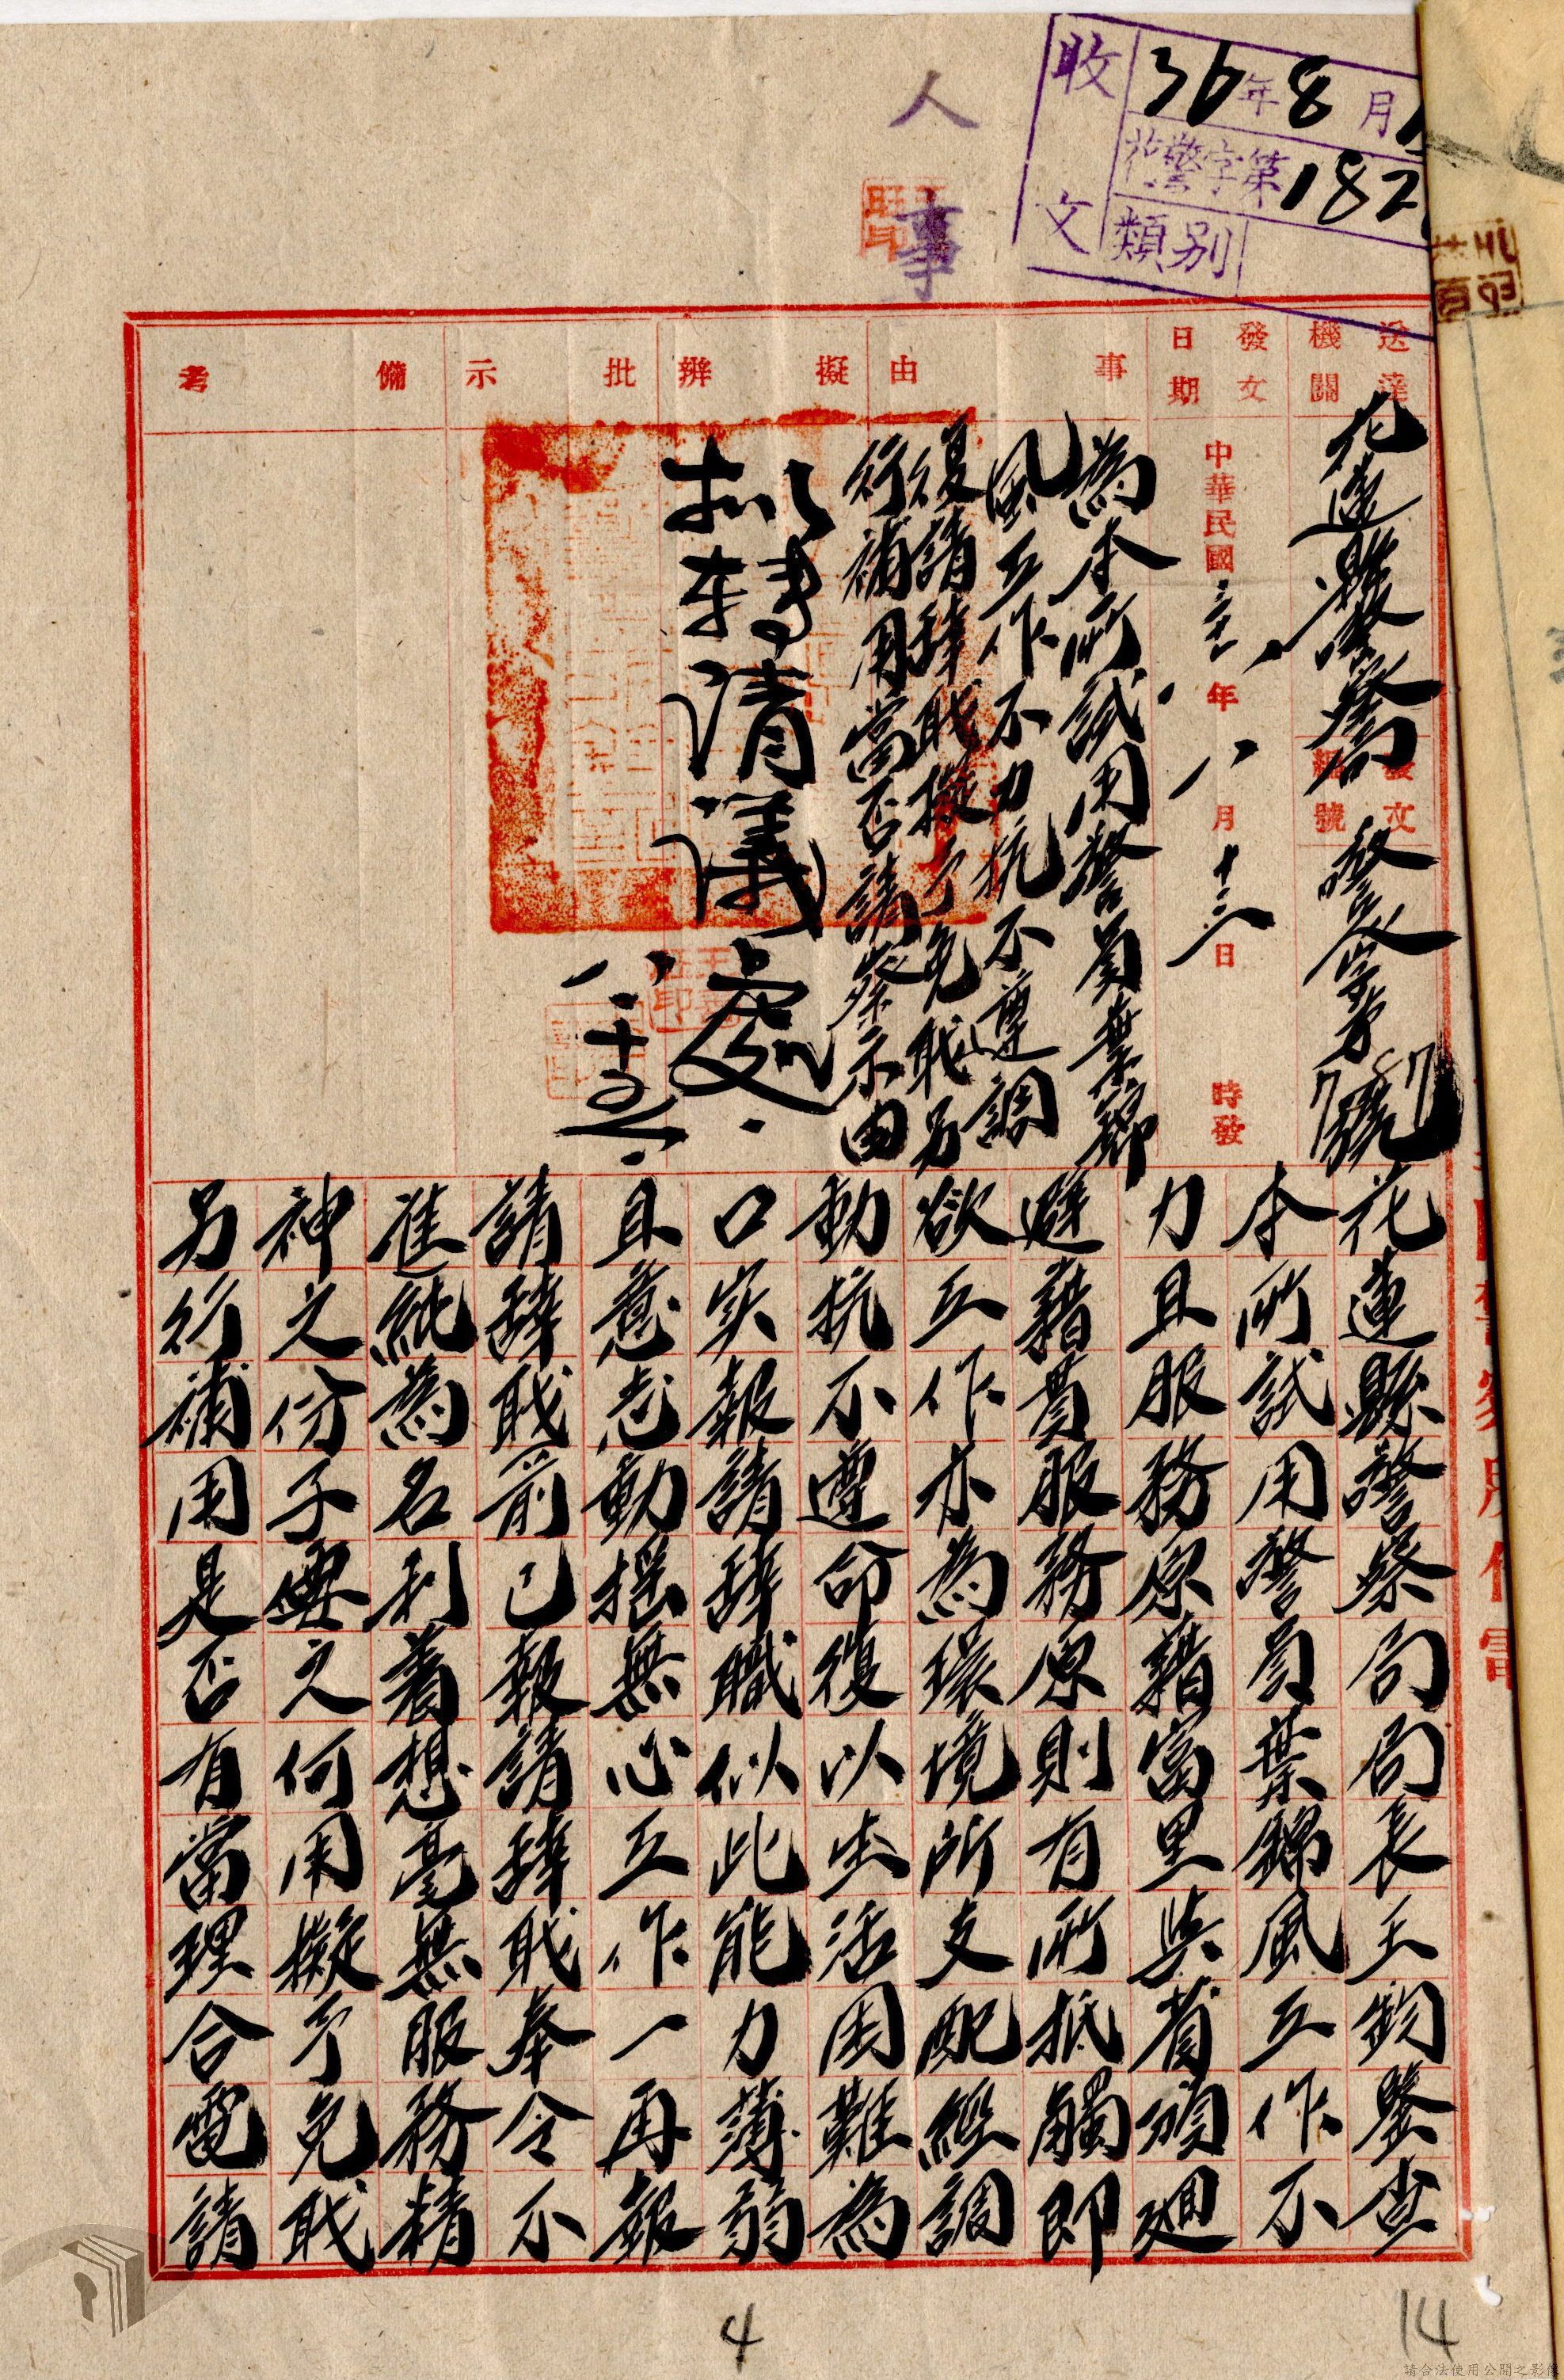 收文
36年8月
花警字第182
類別
人事
送達機關
花蓮縣警察局
發文
號
發文日期
中華民國三十六年八月十三日
時發
事由
為本所試用警員葉錦
風工作不力抗不遵調
復請辭職擬予免職另
行補用當否請察示由
擬辦
批示
備考
擬轉請議處
八.十五.
花蓮縣警察局局長王鈞鑒查
本所試用警員葉錦風工作不
力且服務原籍富里與省頒迴
避籍貫服務原則有所抵觸即
欲工作亦為環境所支配經調
動抗不遵命復以生活困難為
口实報請辭職似此能力薄弱
且意志動搖無心工作一再報
請辭職前已報請辭職奉令不
准純為名利著想毫無服務精
神之份子與之何用擬予免職
另行補用是否有當理合電請
4
14
請合法使用公開之影像